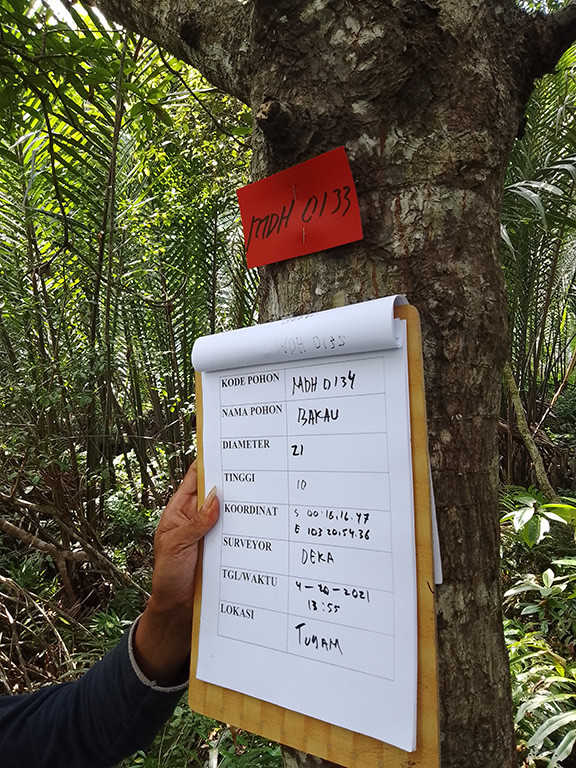 MDH 0133
MDH 0135
KODE POHON MDH 0134
NAMA POHON BAKAU
DIAMETER 21
TINGGI 10
KOORDINAT S 00.16.16.47
E 103 20.54.36
SURVEYOR DEKA
TGL/WAKTU 4-20-2021
13:55
LOKASI TUNAM